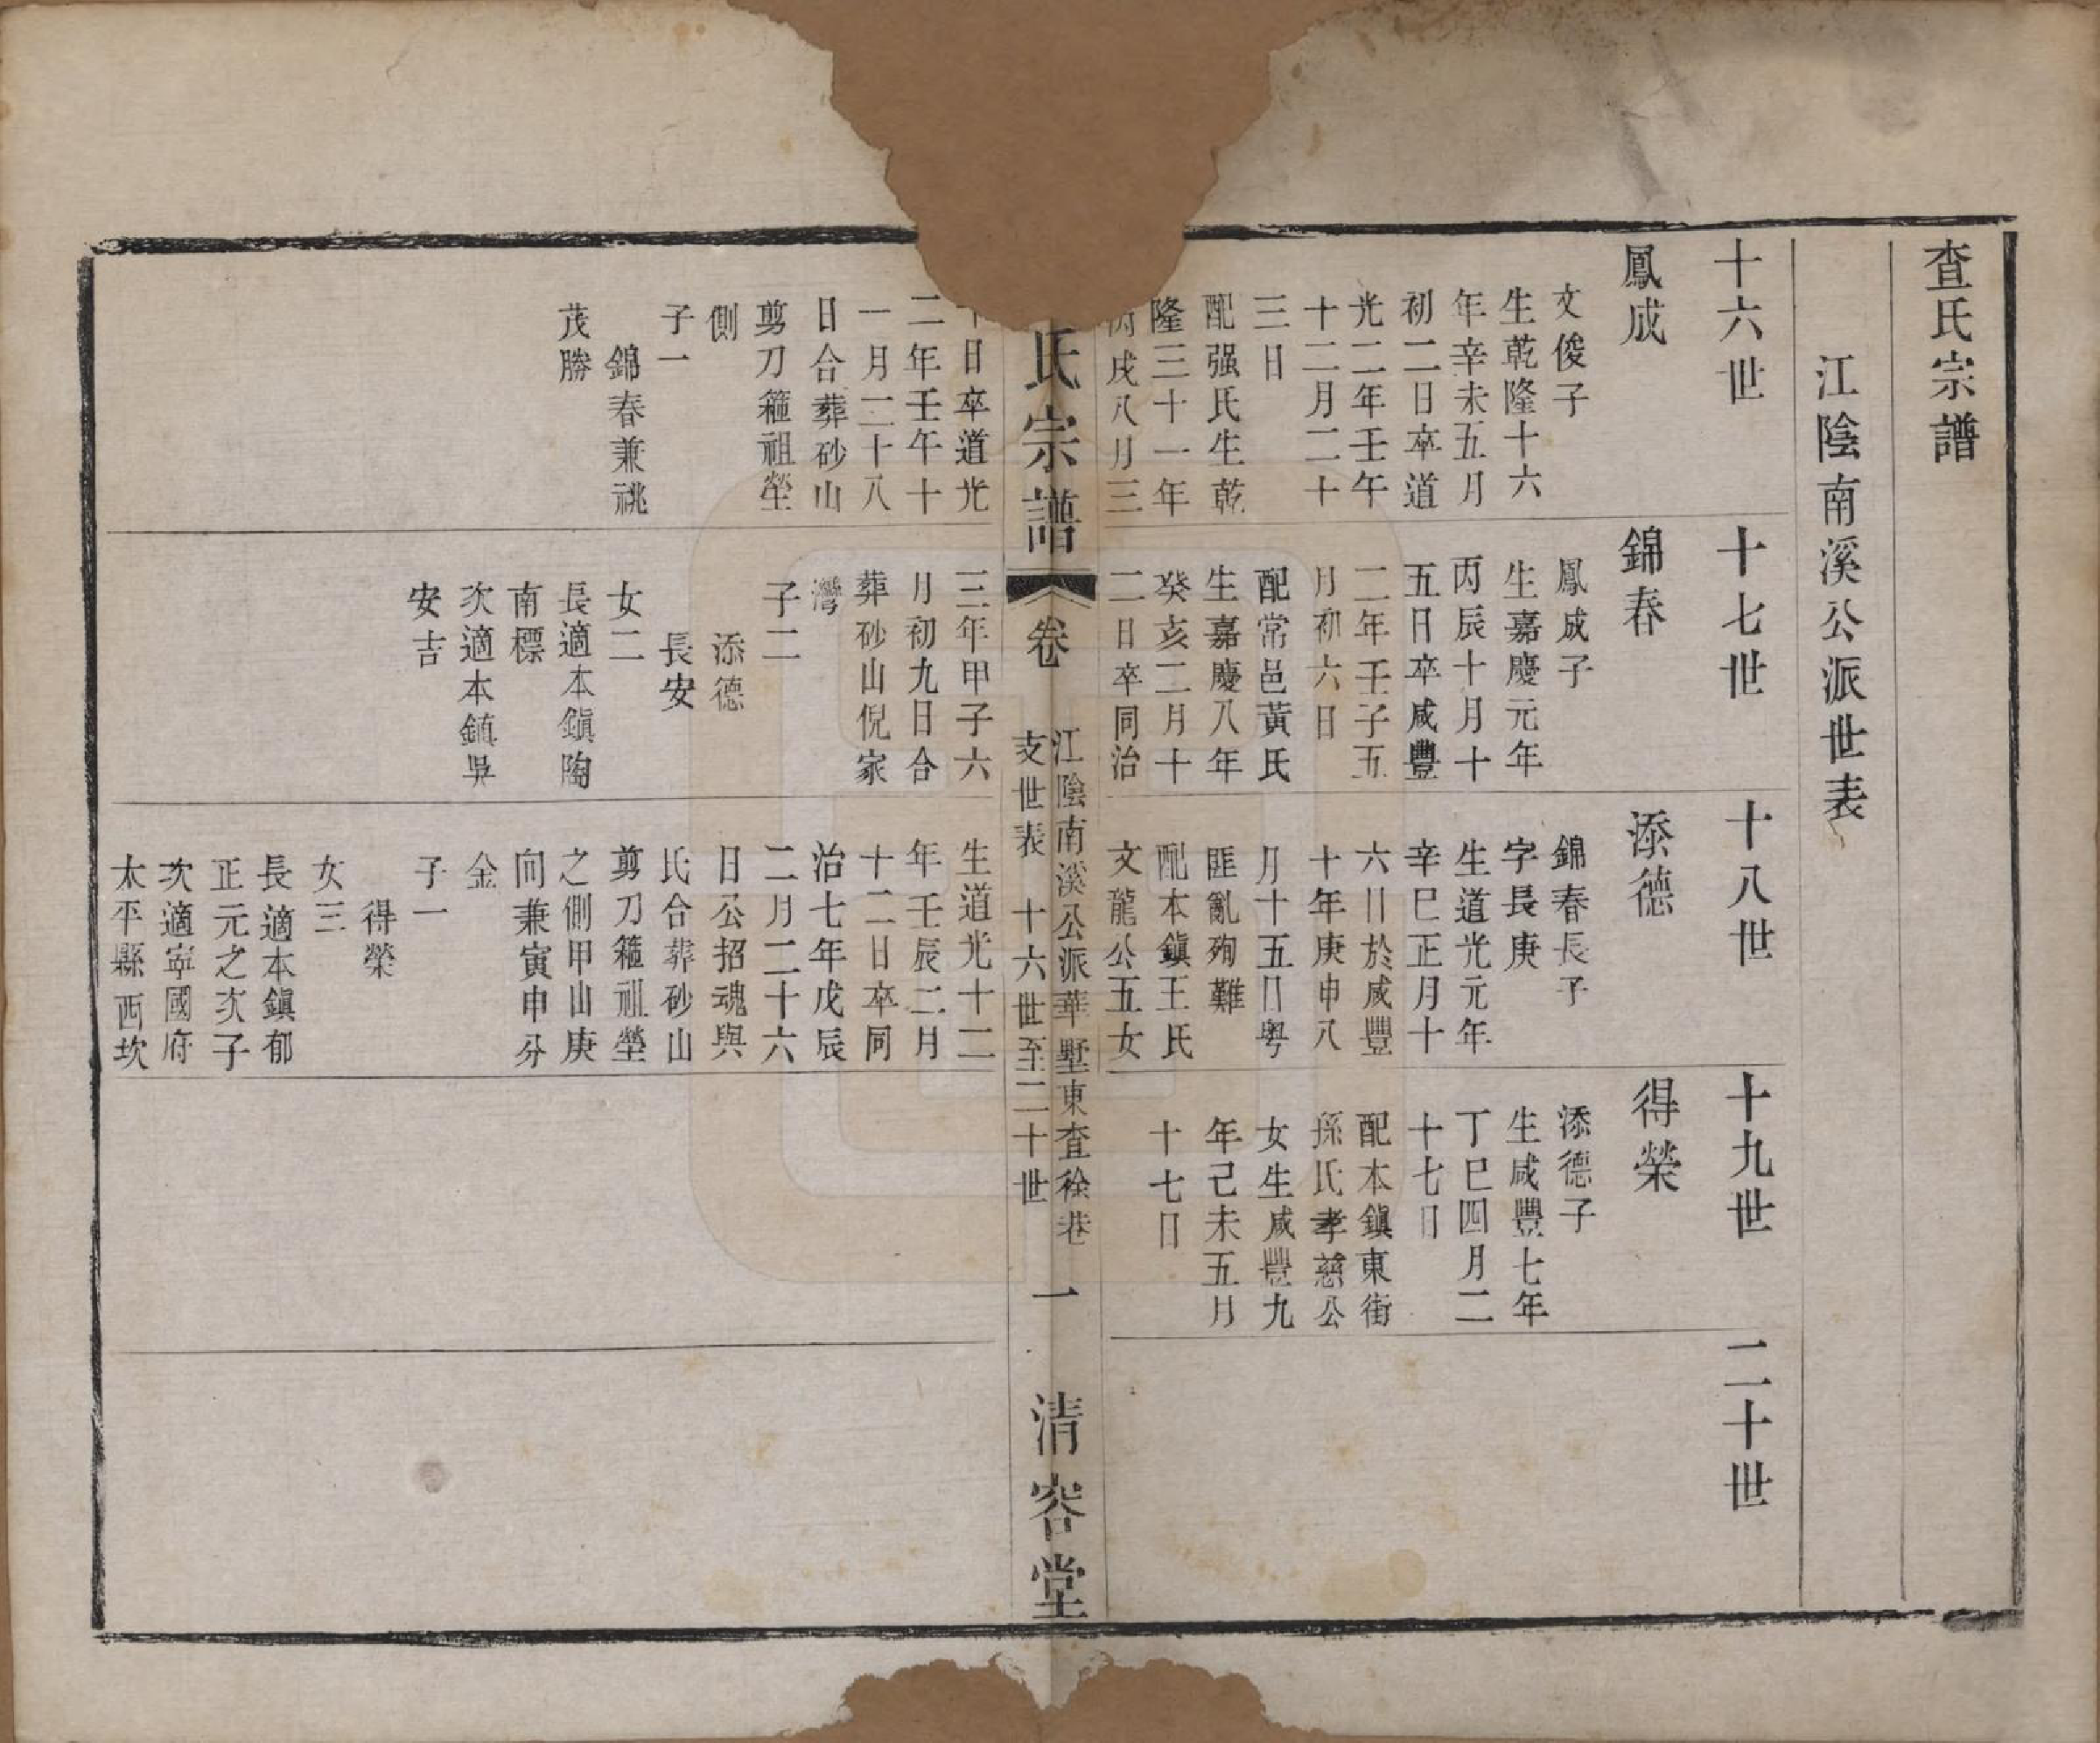 查氏宗譜
江陰南溪公派世表
十六世
鳳成
文俊子
生乾隆十六
年辛未五月
初二日卒道
光二年壬午
十二月二十
三日
配强氏生乾
隆三十一年
丙戌八月三
十日卒道光
二年壬午十
一月二十八
日合葬砂山
剪刀籬祖塋
側
子一
錦春兼祧
茂勝
十七世
錦春
鳳成子
生嘉慶元年
丙辰十月十
五日卒咸豐
二年壬子五
月初六日
配常邑黃氏
生嘉慶八年
癸亥二月十
二日卒同治
三年甲子六
月初九日合
葬砂山倪家
灣
子二
添德
長安
女二
長適本鎭陶
南標
次適本鎮吳
安吉
十八世
添德
錦春長子
字長庚
生道光元年
辛巳正月十
六日於咸豐
十年庚申八
月十五日粤
匪亂殉難
配本鎭王氏
文龍公五女
生道光十二
年壬辰二月
十二日卒同
治七年戊辰
二月二十六
日公招魂與
氏合葬砂山
剪刀籬祖塋
之側甲山庚
向兼寅申分
金
子一
得榮
女三
長適本鎭郁
正元之次子
次適寗國府
太平縣西坎
十九世
得榮
添德子
生咸豐七年
丁巳四月二
十七日
配本鎭東街
孫氏孝慈公
女生咸豐九
年己未五月
十七日
二十世
氏宗譜
卷
江陰南溪公派華墅東查徐巷
支世表 十六世至二十世
一
清容堂